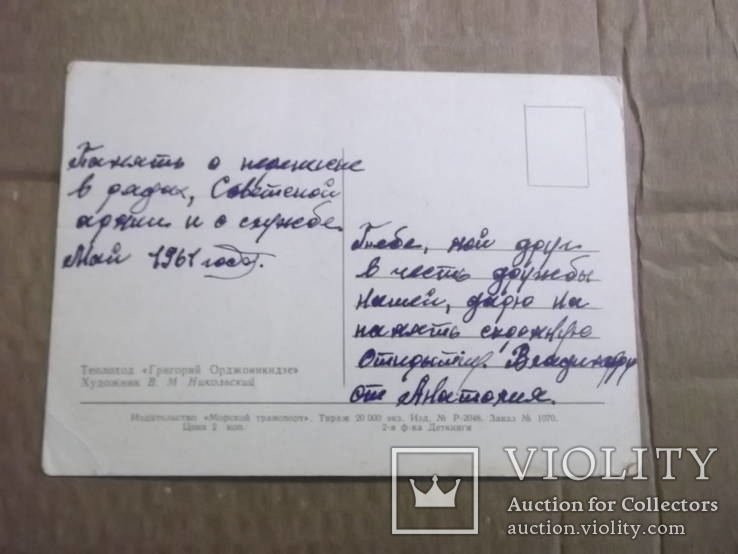 Память о
в рядах, Советской
армии и о службе.
Май 1961 года.
Тебе, мой друг
в честь дружбы
нашей, дарю на
память скромную
открытку. Владимиру
от Анатолия.
Теплоход «Григорий Орджоникидзе»
Художник В. М Никольский
Издательство «Морской транспорт». Тираж 20 000 экз. Изд. № Р-2048. Заказ № 1070.
Цена 2 коп. 2-я ф-ка Деткниги
VIOLITY
Auction for Collectors
auction.violity.com